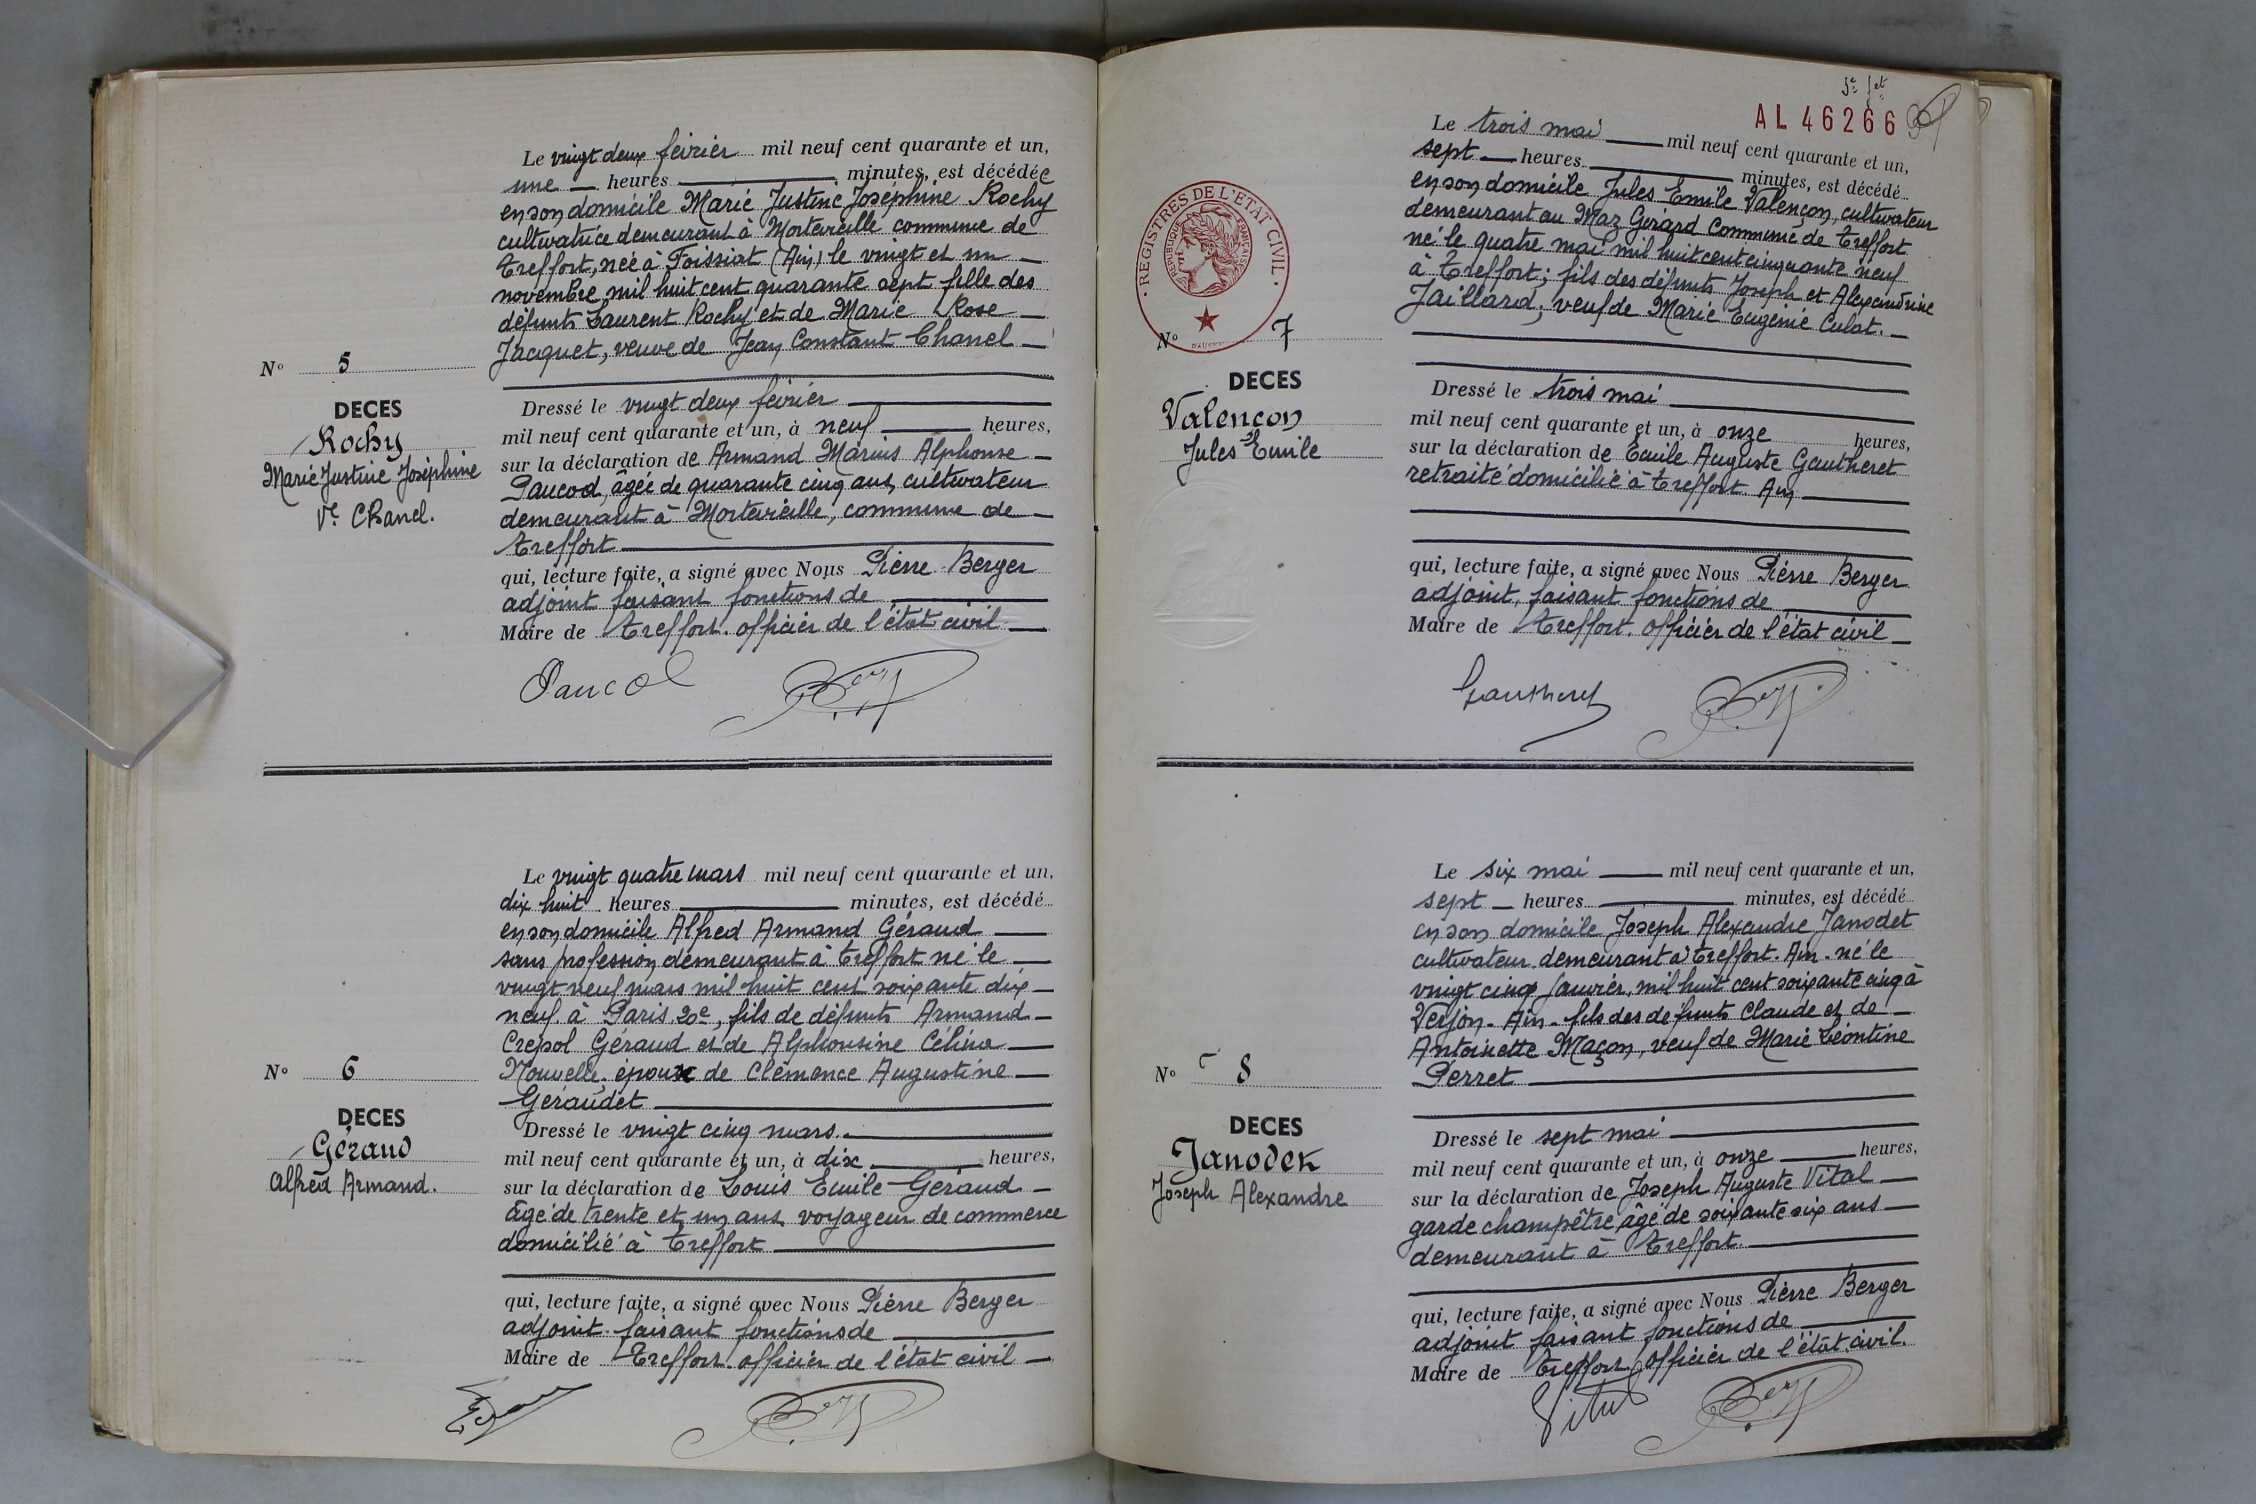 Le vingt deux février mil neuf cent quarante et un,
une heures minutes, est décédée
en son domicile Marie Justine Joséphine Rochy
cultivatrice demeurant à Montareille commune de
Treffort, née à Foissiat (Ain) le vingt et un
novembre mil huit cent quarante sept fille des
défunts Laurent Rochy et de Marie Rose
Jacquet, veuve de Jean Constant Chanel
No 5
DECES
Rochy
Marie Justine Joséphine
Ve Chanel.
Dressé le vingt deux février
mil neuf cent quarante et un, à neuf heures,
sur la déclaration de Armand Marius Alphonse
Paucod, âgée de quarante cinq ans, cultivateur
demeurant à Montareille, commune de
Treffort
qui, lecture faite, a signé avec Nous Pierre Berger
adjoint faisant fonctions de
Maire de Treffort. officier de l'état civil
Paucod
Le vingt quatre mars mil neuf cent quarante et un,
dix huit heures minutes, est décédé
en son domicile Alfred Armand Géraud
sans profession demeurant à Treffort né le
vingt neuf mars mil huit cent soixante dix
neuf à Paris 20e, fils de défunts Armand
Crépol Géraud et de Alphonsine Célina
Nouvelle, époux de Clémence Augustine
Geraudet
No 6
DECES
Géraud
Alfred Armand.
Dressé le vingt cinq mars.
mil neuf cent quarante et un, à dix heures,
sur la déclaration de Louis Emile Géraud
âgé de trente et un ans voyageur de commerce
domicilié à Treffort
qui, lecture faite, a signé avec Nous Pierre Berger
adjoint faisant fonctions de
Maire de Treffort. officier de l'état civil
5e fet
AL 46266
Le trois mai mil neuf cent quarante et un,
sept heures minutes, est décédé
en son domicile Jules Emile Valençon, cultivateur
demeurant au Maz Girard Commune de Treffort
né le quatre mai mil huit cent cinquante neuf
à Treffort; fils des défunts Joseph et Alexandrine
Jaillard, veuf de Marie Eugénie Culat.
REGISTRES DE L'ETAT CIVIL
REPUBLIQUE FRANÇAISE
No 7
DECES
Valençon
Jules Emile
Dressé le trois mai
mil neuf cent quarante et un, à onze heures,
sur la déclaration de Emile Auguste Gautheret
retraité domicilié à Treffort Ain
qui, lecture faite, a signé avec Nous Pierre Berger
adjoint, faisant fonctions de
Maire de Treffort. officier de l'état civil
Gautheret
Le six mai mil neuf cent quarante et un,
sept heures minutes, est décédé
en son domicile Joseph Alexandre Janodet
cultivateur demeurant à Treffort. Ain. né le
vingt cinq janvier, mil huit cent soixante cinq à
Verjon. Ain. fils des défunts Claude et de
Antoinette Maçon, veuf de Marie Léontine
Perret
No 8
DECES
Janodet
Joseph Alexandre
Dressé le sept mai
mil neuf cent quarante et un, à onze heures,
sur la déclaration de Joseph Auguste Vital
garde champêtre âgé de soixante six ans
demeurant à Treffort.
qui, lecture faite, a signé avec Nous Pierre Berger
adjoint faisant fonctions de
Maire de Treffort officier de l'état civil.
Vital